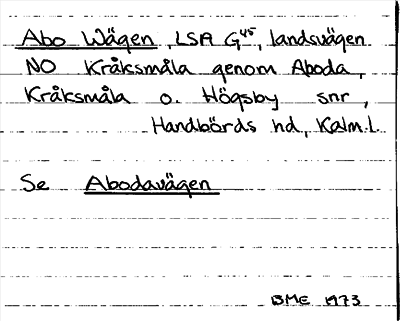 Abo Wägen, LSA G45, landsvägen
NO Kråksmåla genom Aboda,
Kråksmåla o. Högsby snr,
Handbörds hd, Kalm.l.
Se Abodavägen
BME 1973